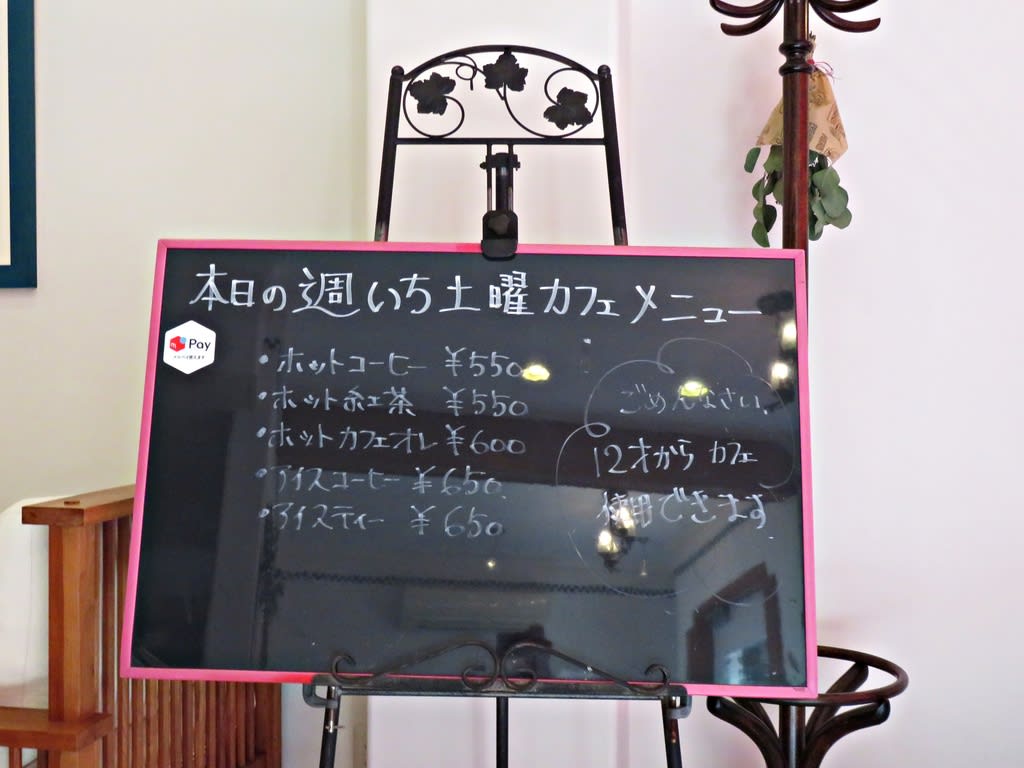 本日の週いち土曜カフェメニュー
Pay
メルペイ使えます
・ホットコーヒー ￥550
・ホット紅茶 ￥550
・ホットカフェオレ ￥600
・アイスコーヒー ￥650
・アイスティー ￥650
ごめんなさい、
12才から カフェ
使用できます